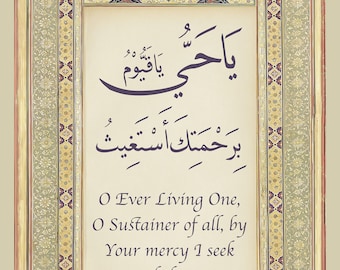 يَا حَيُّ يَا قَيُّوْمُ
بِرَحْمَتِكَ أَسْتَغِيثُ
O Ever Living One,
O Sustainer of all, by
Your mercy I seek